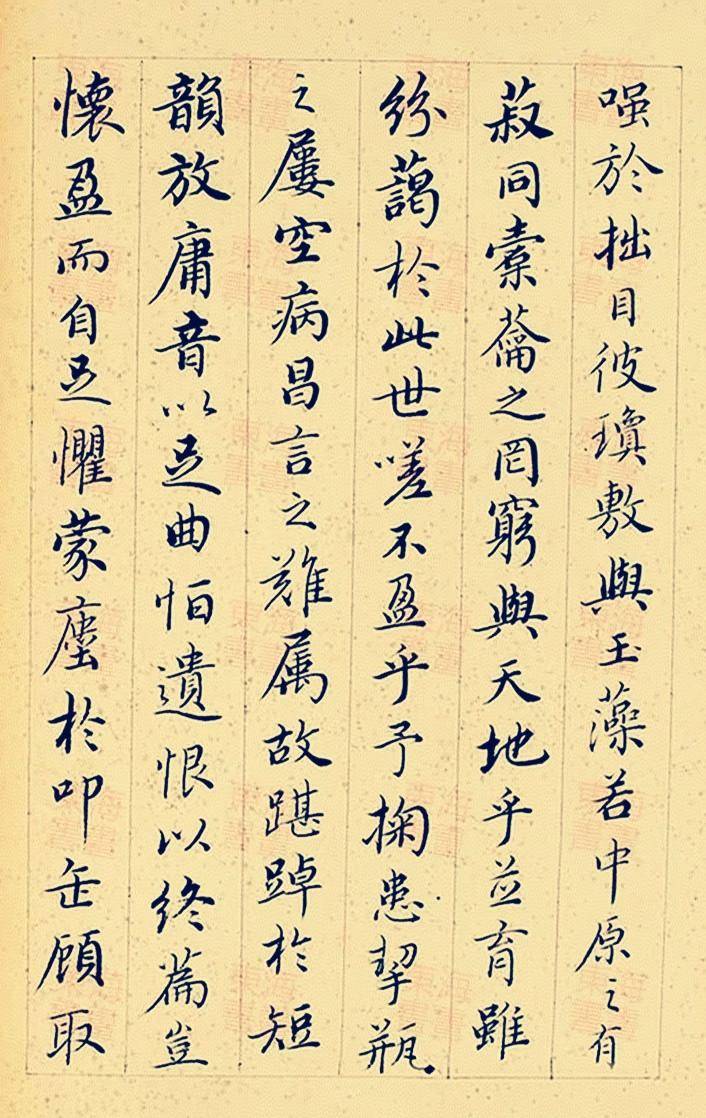 嗤於拙目彼瓊敷與玉藻若中原之有
菽同橐蘥之罔窮與天地乎並育雖
紛藹於此世嗟不盈乎予掬患挈瓶
之屢空病昌言之難属故踸踔於短
韻放庸音以足曲恒遺恨以終篇豈
懷盈而自足懼蒙塵於叩缶顧取